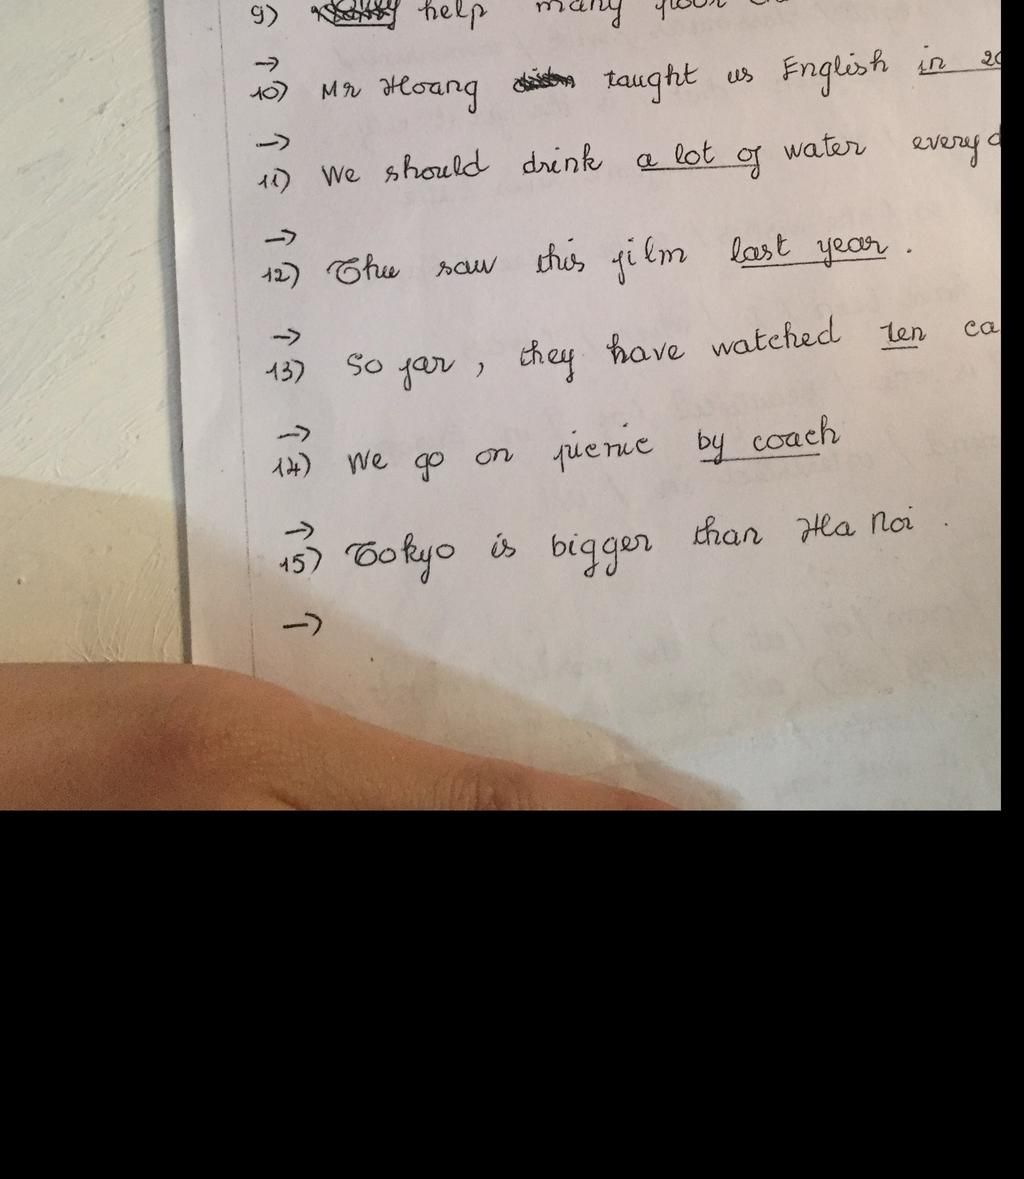 9) help many poor
→
10) Mr Hoang taught us English in 20
→
11) We should drink a lot of water every d
→
12) Thu saw this film last year .
→
13) So far , they have watched ten ca
→
14) We go on picnic by coach
→
15) Tokyo is bigger than Ha Noi .
→